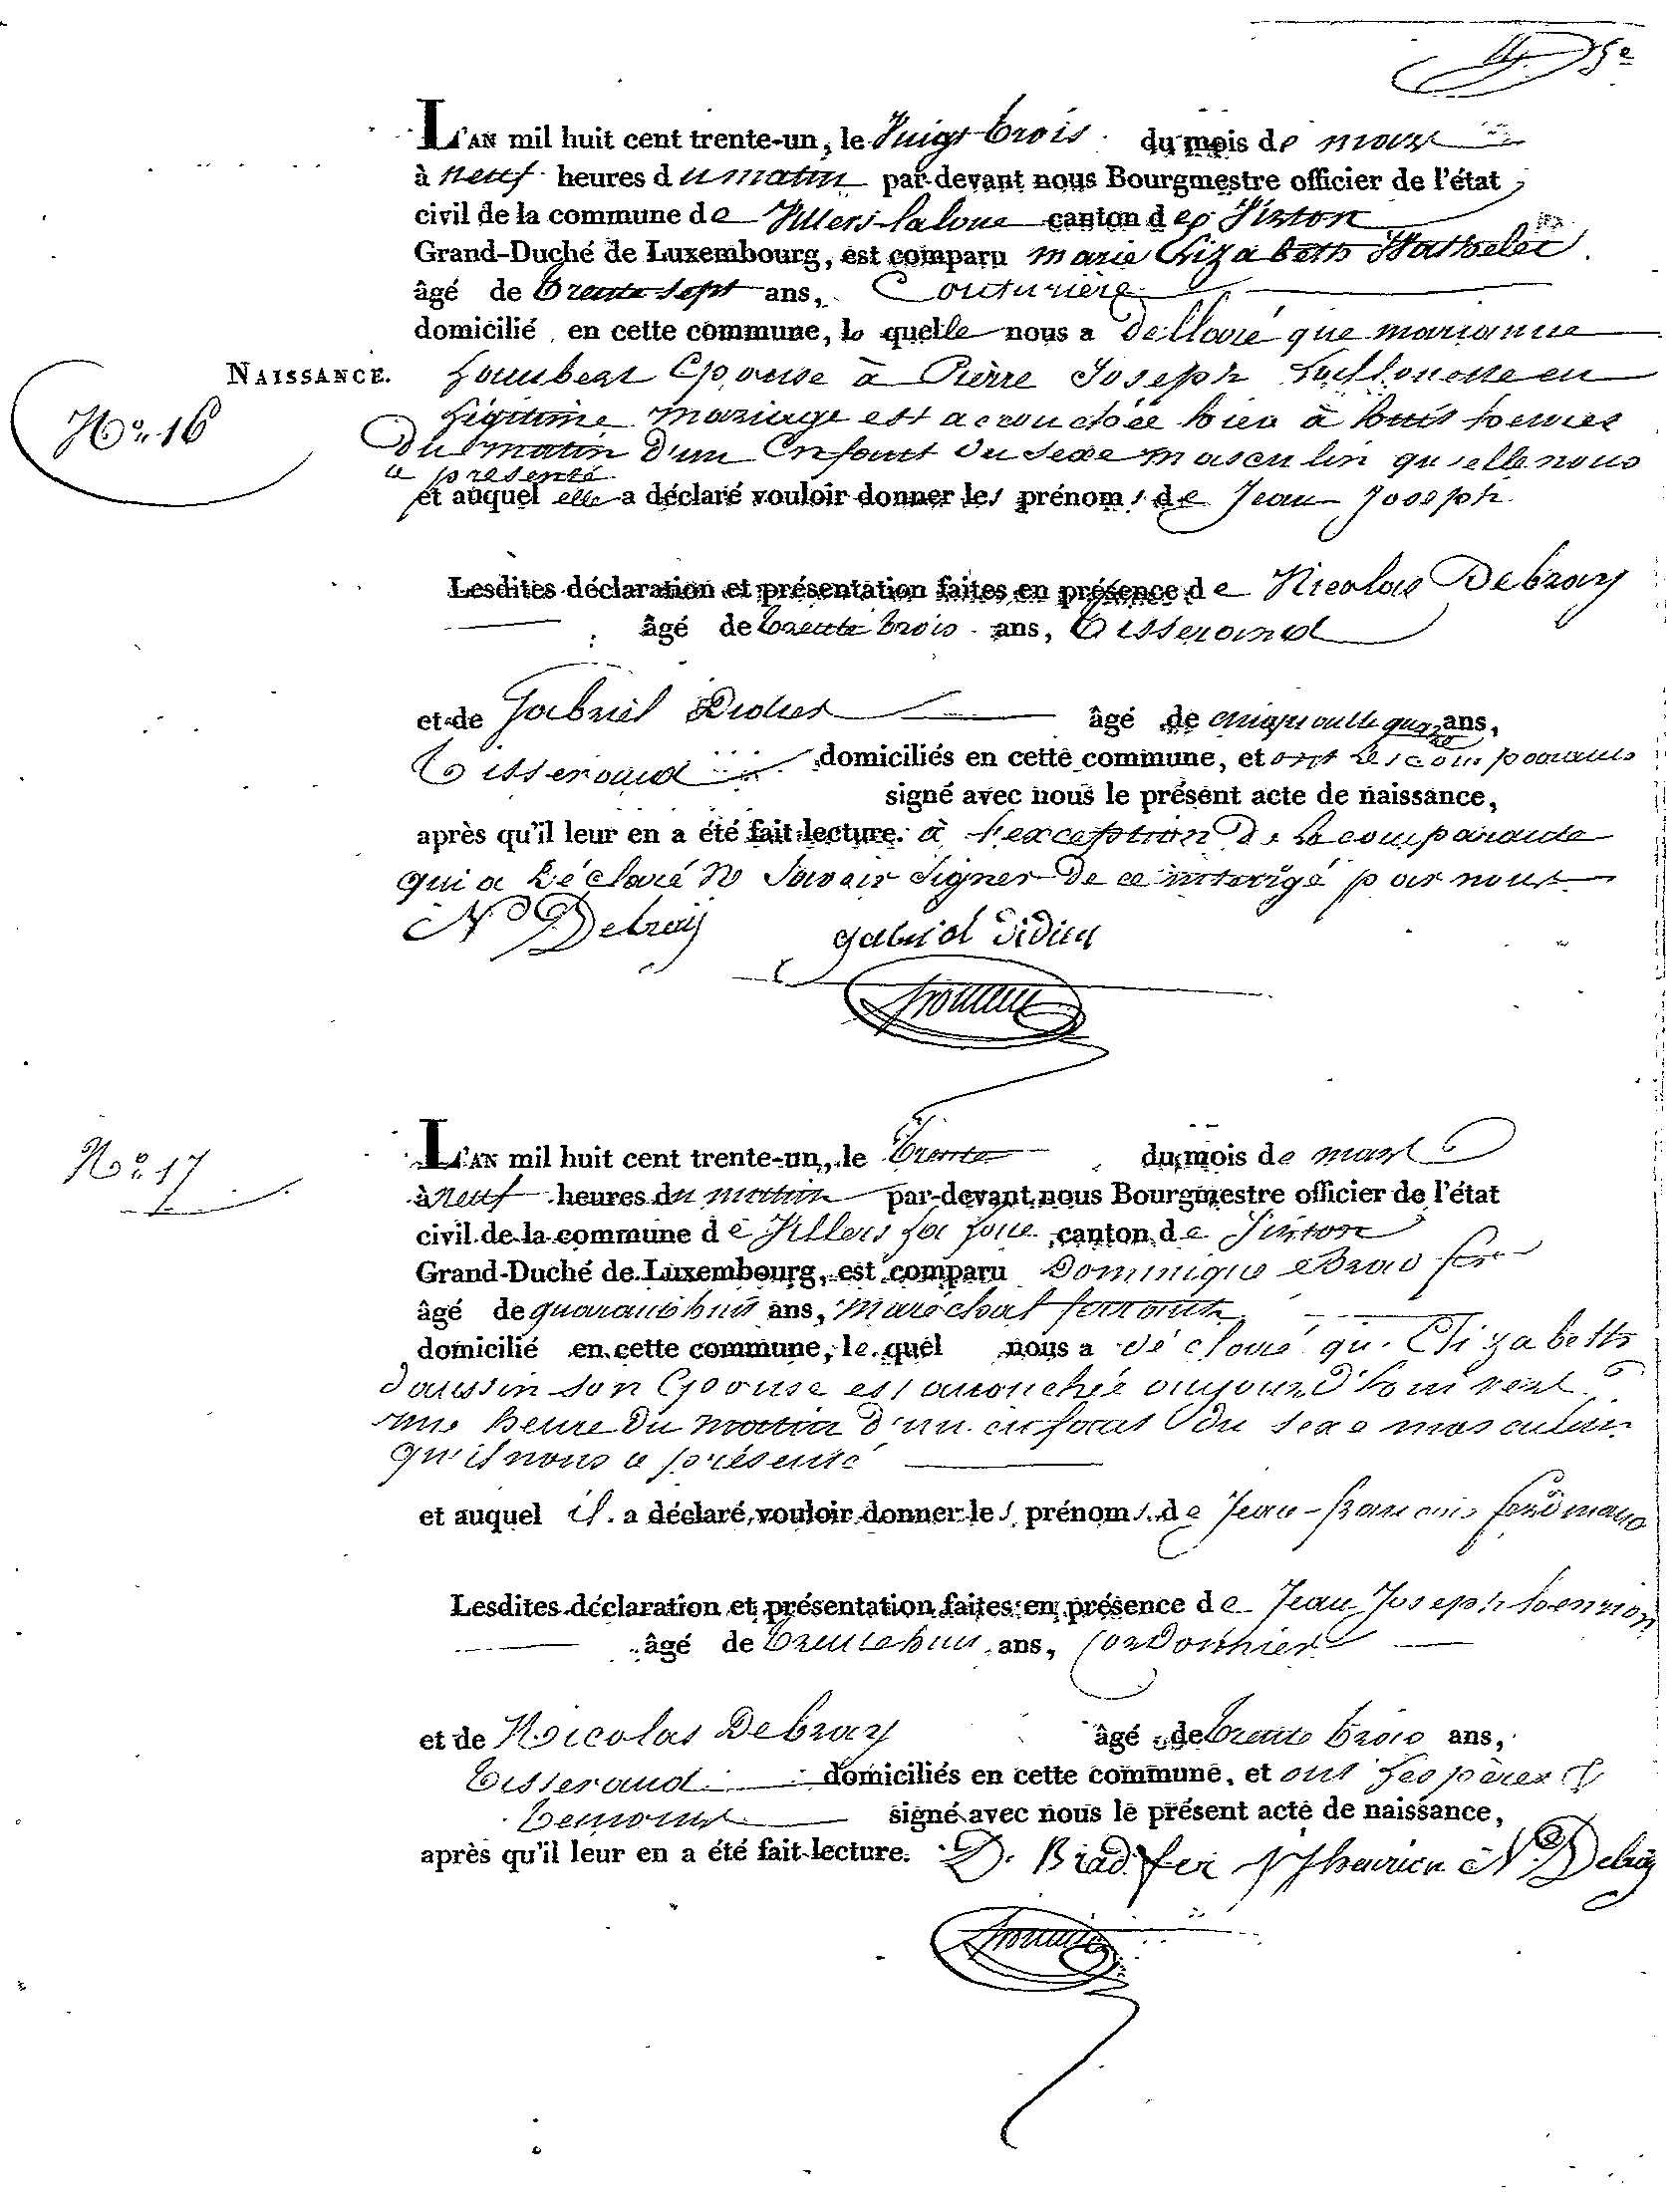 5e
L'AN mil huit cent trente-un, le vingt trois du mois de mars
à neuf heures du matin par-devant nous Bourgmestre officier de l'état
civil de la commune de Villers la loue canton de Virton
Grand-Duché de Luxembourg, est comparu marie Elizabeth Wathelet
âgé de trente sept ans, Couturière
domicilié en cette commune, la quelle nous a déclaré que marianne
NAISSANCE. Lambert Epouse à Pierre Joseph en
No. 16 Légitime mariage est accouchée hier à huit heures
du matin d'un Enfant du sexe masculin qu'elle nous
a présenté
et auquel elle a déclaré vouloir donner les prénoms de Jean Joseph
Lesdites déclaration et présentation faites en présence de Nicolas Debray
âgé de trente trois ans, tisserand
et de Gabriel Didier âgé de cinquante quatre ans,
Tisserand domiciliés en cette commune, et ont les comparants
signé avec nous le présent acte de naissance,
après qu'il leur en a été fait lecture. à l'exception de la comparante
qui a déclaré ne Savoir Signer de ce interrogé par nous
N Debray gabriel didier
No. 17 L'AN mil huit cent trente-un, le Trente du mois de mars
à neuf heures du matin par-devant nous Bourgmestre officier de l'état
civil de la commune de Villers La Loue canton de Virton
Grand-Duché de Luxembourg, est comparu Dominique Brad fer
âgé de quarante huit ans, maréchal ferrant
domicilié en cette commune, le quel nous a déclaré qu' Elizabeth
daussin son Epouse est accouchée aujourd'hui vers
une heure du matin d'un enfant du sexe masculin
qu'il nous a présenté
et auquel il a déclaré vouloir donner les prénoms de Jean-francois ferdinand
Lesdites déclaration et présentation faites en présence de Jean Joseph henrion
âgé de trente huit ans, Cordonnier
et de Nicolas Debray âgé de trente trois ans,
Tisserand domiciliés en cette commune, et ont les pères &
temoins signé avec nous le présent acte de naissance,
après qu'il leur en a été fait lecture. D. Brad fer henrion N Debray